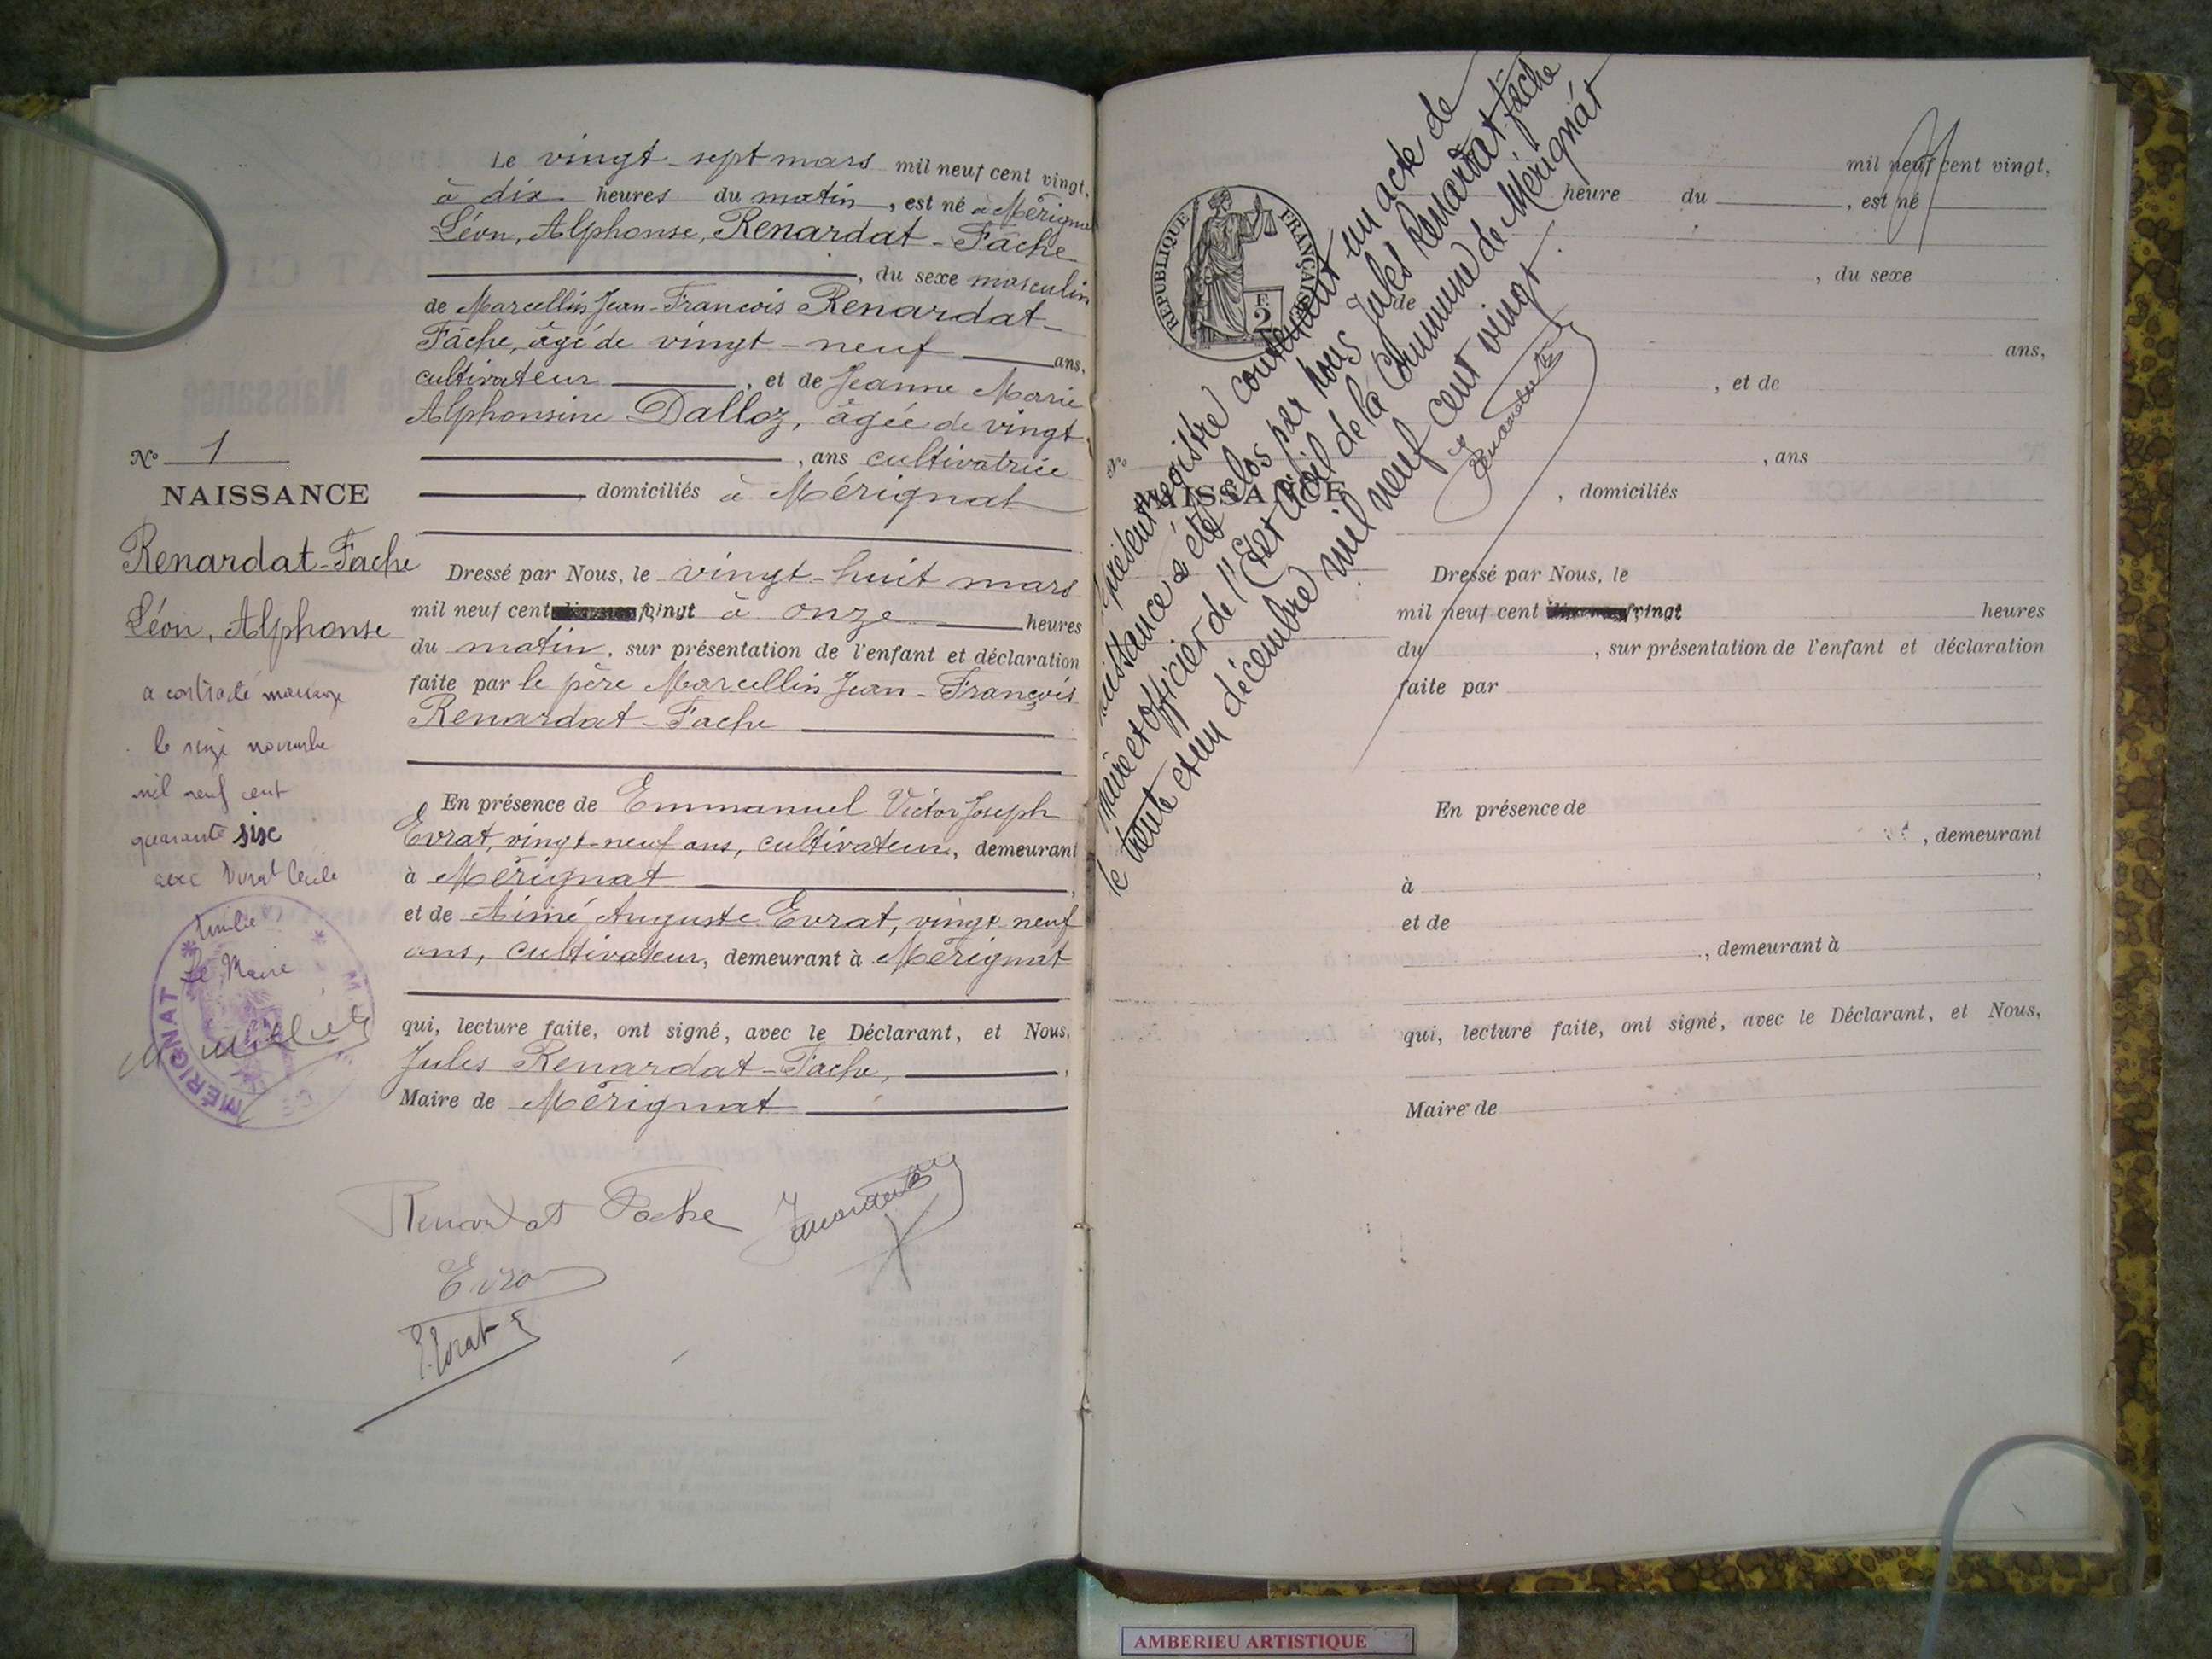 Le vingt-sept mars mil neuf cent vingt,
à dix heures du matin, est né à Mérignat
Léon, Alphonse, Renardat-Fache
, du sexe masculin
de Marcellin Jean-François Renardat-
Fache, âgé de vingt-neuf ans,
cultivateur, et de Jeanne Marie
Alphonsine Dalloz, âgée de vingt
, ans cultivatrice
domiciliés à Mérignat
N° 1
NAISSANCE
Renardat-Fache
Léon, Alphonse
a contracté mariage
le seize novembre
mil neuf cent
quarante six
avec Cécile
Le Maire
MÉRIGNAT
Dressé par Nous, le vingt-huit mars
mil neuf cent vingt à onze heures
du matin, sur présentation de l'enfant et déclaration
faite par le père Marcellin Jean-François
Renardat-Fache
En présence de Emmanuel Victor Joseph
Evrat, vingt-neuf ans, cultivateur, demeurant
à Mérignat,
et de Aimé Auguste Evrat, vingt neuf
ans, cultivateur, demeurant à Mérignat
qui, lecture faite, ont signé, avec le Déclarant, et Nous,
Jules Renardat-Fache,
Maire de Mérignat
Renardat Fache
Evrat
E. Evrat
RÉPUBLIQUE FRANÇAISE
2 F.
présent registre contenant un acte de
naissance a été clos par nous Jules Renardat-Fache
maire et officier de l'Etat civil de la Commune de Mérignat
le trente et un décembre mil neuf cent vingt.
mil neuf cent vingt,
heure du , est né
, du sexe
de
ans,
, et de
N°
, ans
NAISSANCE
, domiciliés
Dressé par Nous, le
mil neuf cent vingt heures
du , sur présentation de l'enfant et déclaration
faite par
En présence de
, demeurant
à ,
et de
, demeurant à
qui, lecture faite, ont signé, avec le Déclarant, et Nous,
Maire de
AMBERIEU ARTISTIQUE